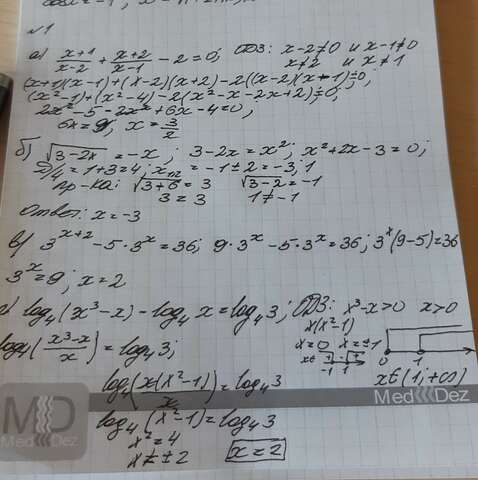 №1
а) (x+1)/(x-2) + (x+2)/(x-1) - 2 = 0; ОДЗ: x-2≠0 и x-1≠0
x≠2 и x≠1
(x+1)(x-1)+(x-2)(x+2)-2(x-2)(x-1)=0;
(x²-1)+(x²-4)-2(x²-x-2x+2)=0;
2x²-5-2x²+6x-4=0;
6x=9; x=3/2
б) √(3-2x) = -x; 3-2x=x²; x²+2x-3=0;
D/4=1+3=4; x₁,₂=-1±2=-3; 1
пр-ка: √(3+6)=3 √(3-2)=-1
3=3 1≠-1
Ответ: x=-3
в) 3^(x+2) - 5·3^x = 36; 9·3^x - 5·3^x = 36; 3^x(9-5)=36
3^x=9; x=2
log₄(x³-x)-log₄x=log₄3; ОДЗ: x³-x>0 x>0
x(x²-1)
log₄((x³-x)/x)=log₄3; x=0 x=±1
-1 1 0 1
log₄(x(x²-1)/x)=log₄3 x∈(1;+∞)
log₄(x²-1)=log₄3
x²=4
x=±2 x=2
MD MedDez
MedDez